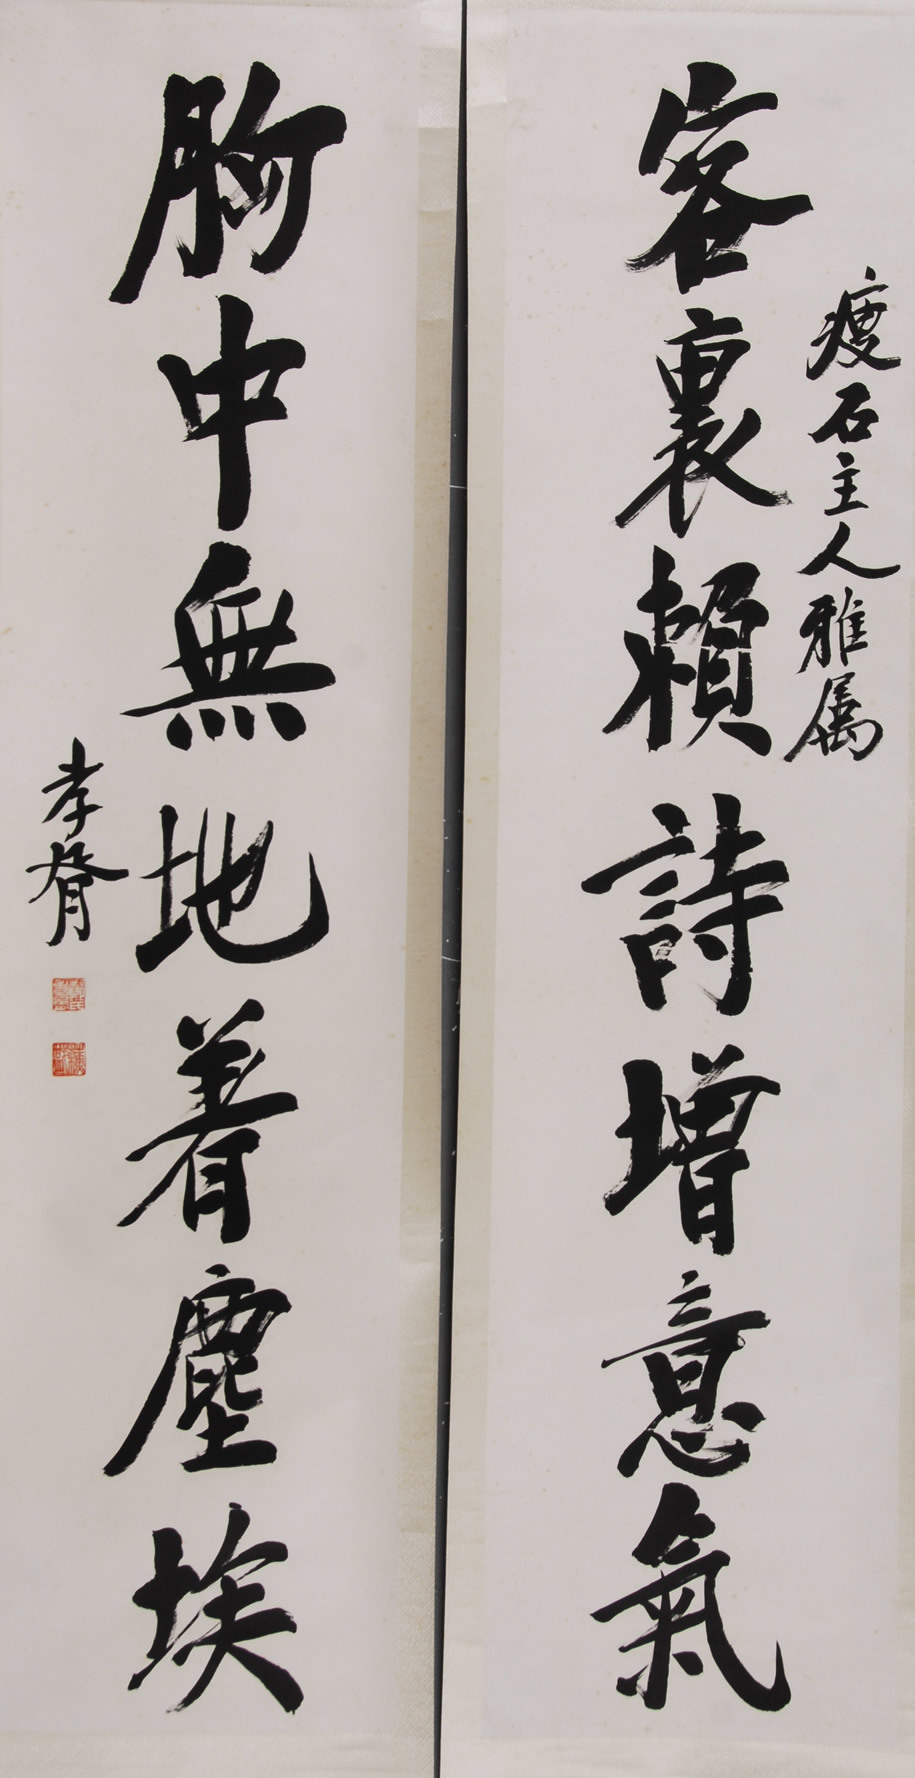 瘦石主人雅属
客裏賴詩增意氣
胸中無地着塵埃
孝胥